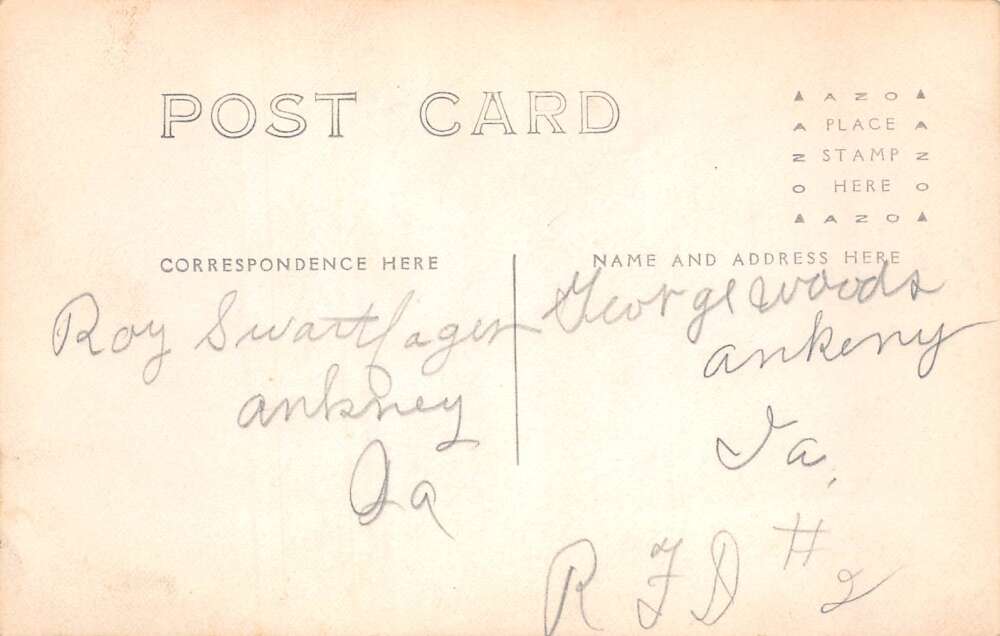 POST CARD
▲ A Z O ▲
A PLACE A
Z STAMP Z
O HERE O
▲ A Z O ▲
CORRESPONDENCE HERE
Roy
ankney
Ia
NAME AND ADDRESS HERE
George woods
ankeny
Ia.
R F D # 2